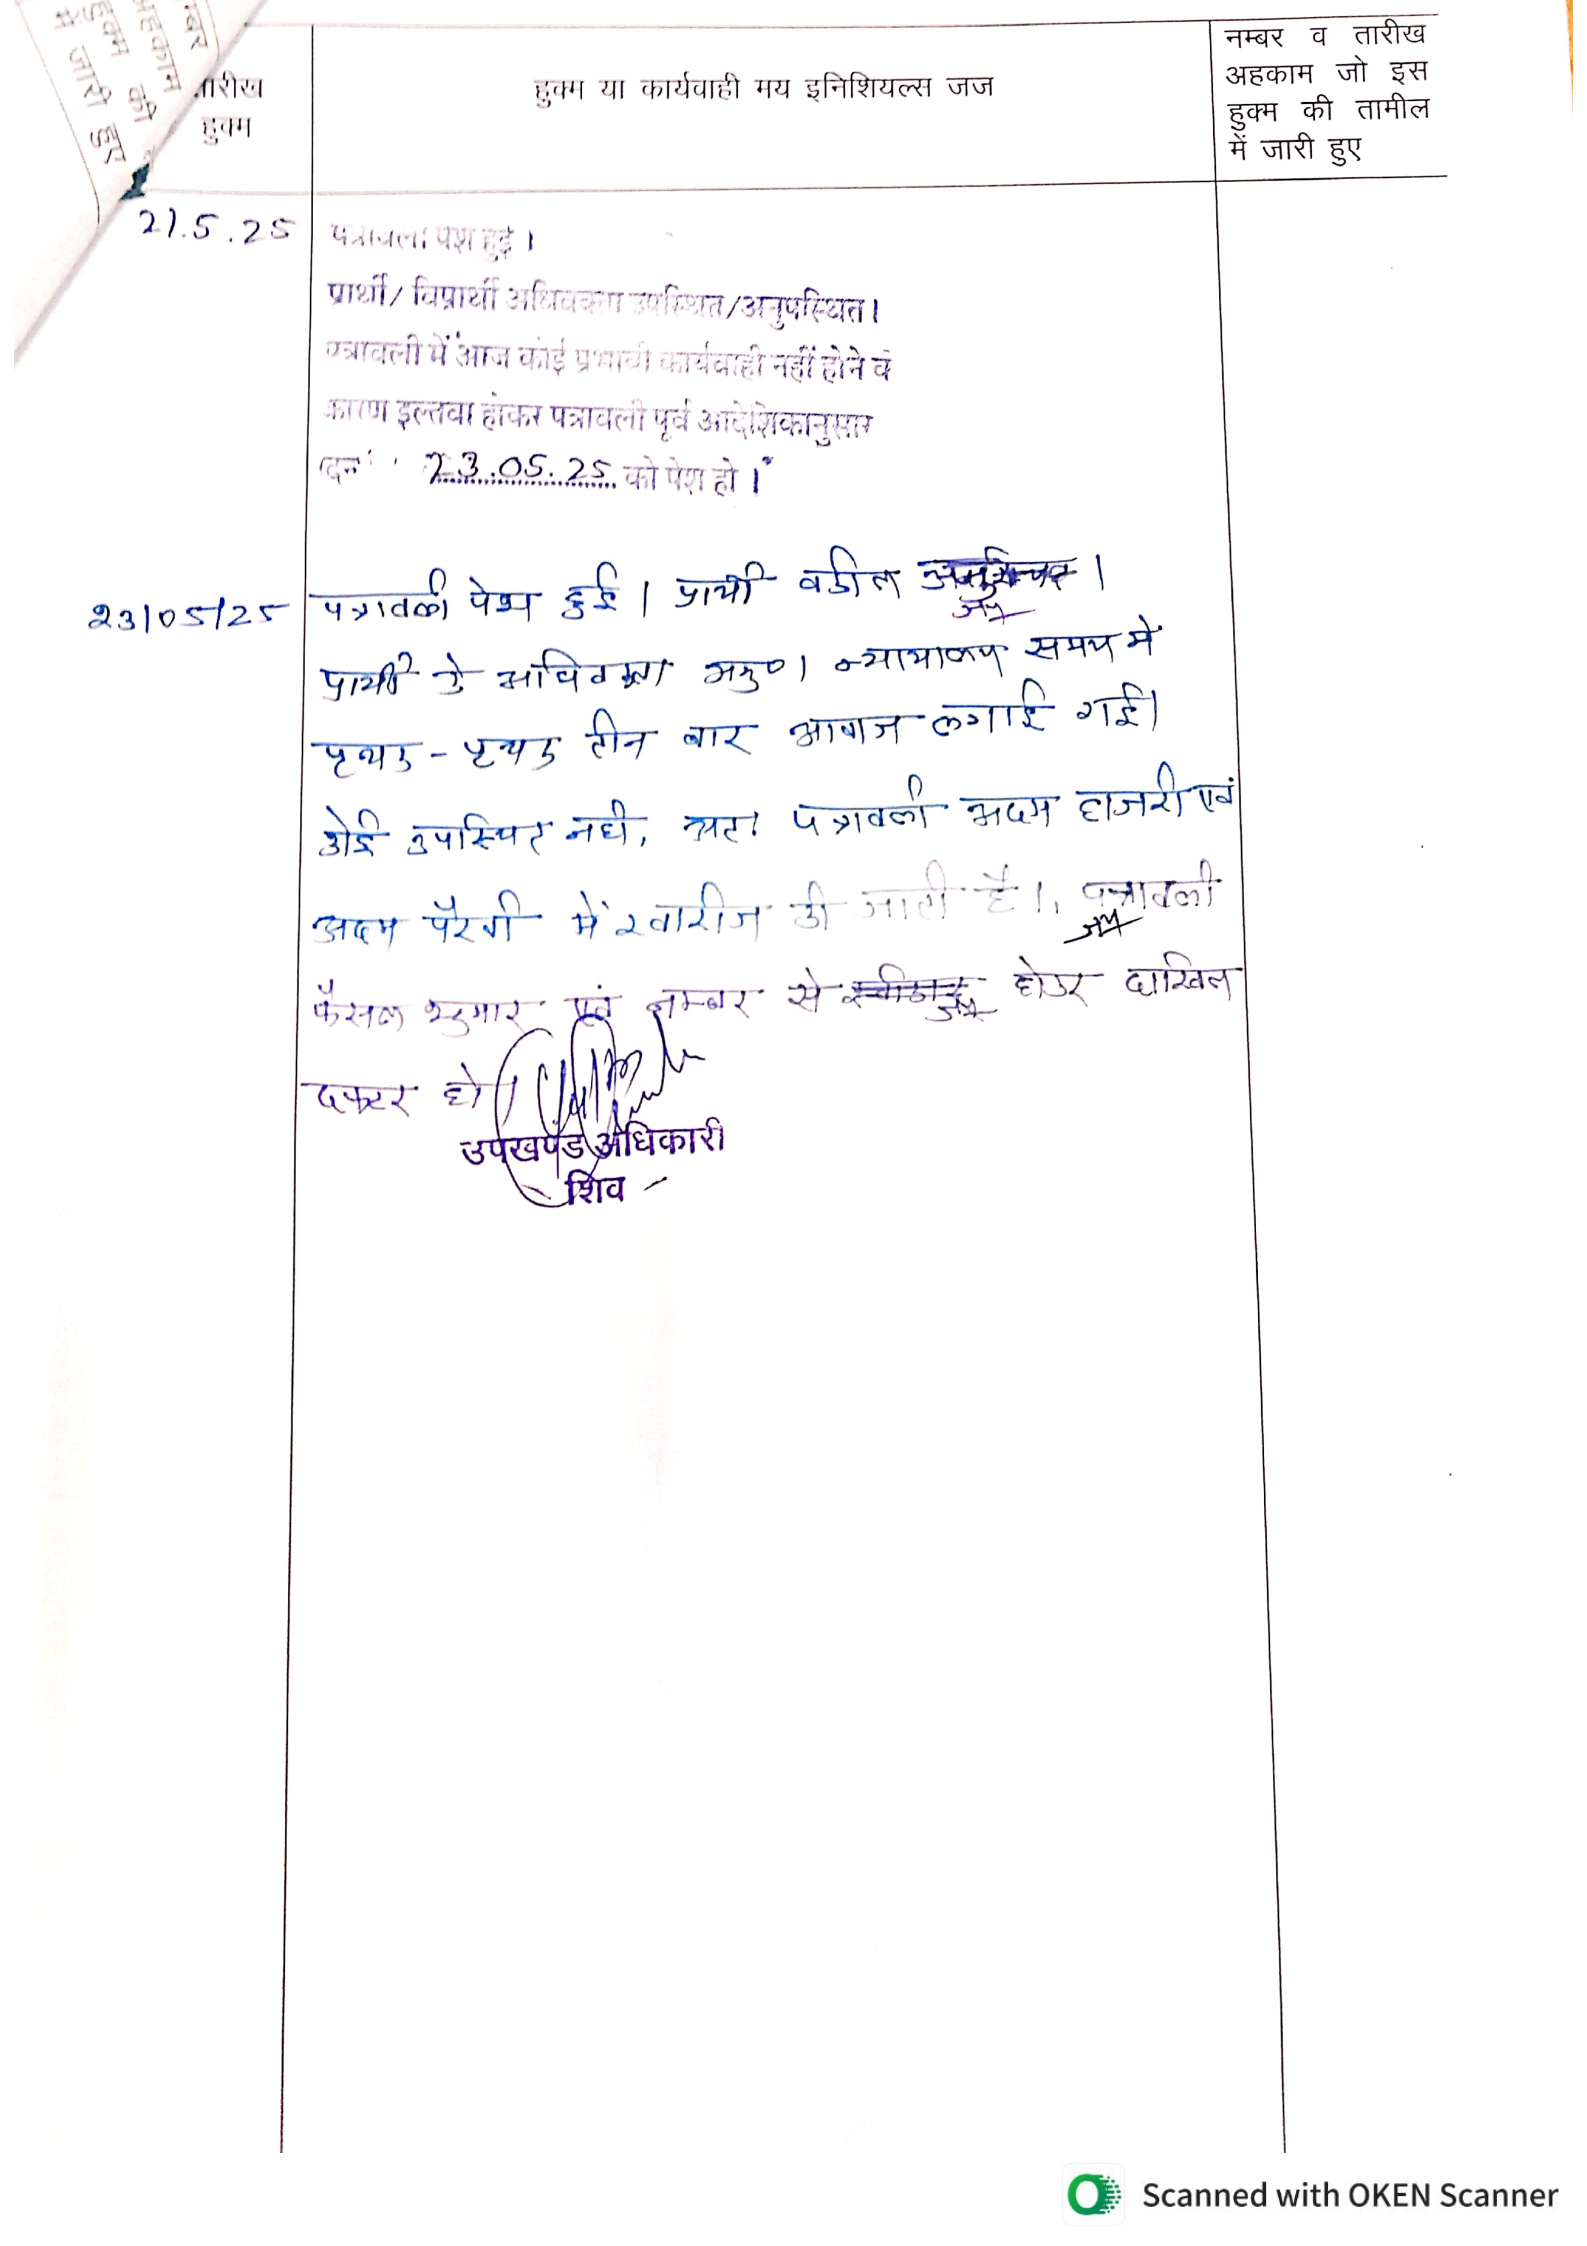 म्बर
अहकाम
हुक्म की
में जारी हुए
तारीख
हुक्म
हुक्म या कार्यवाही मय इनिशियल्स जज
नम्बर व तारीख
अहकाम जो इस
हुक्म की तामील
में जारी हुए
21.5.25
पत्रावली पेश हुई।
प्रार्थी/ विप्रार्थी अधिवक्ता उपस्थित/अनुपस्थित।
पत्रावली में आज कोई प्रभावी कार्यवाही नहीं होने के
कारण इल्तवा होकर पत्रावली पूर्व आदेशिकानुसार
23.05.25 को पेश हो।
23/05/25
पत्रावली पेश हुई। प्रार्थी वकील
प्रार्थी के अधिवक्ता अनु०। न्यायालय समय में
पृथक - पृथक तीन बार आवाज लगाई गई।
कोई उपस्थित नहीं, अतः पत्रावली अदम हाजरी एवं
अदम पैरवी में खारीज की जाती है।, पत्रावली
फैसल शुमार एवं नम्बर से होकर दाखिल
दफ्तर हो।
उपखण्ड अधिकारी
शिव
Scanned with OKEN Scanner